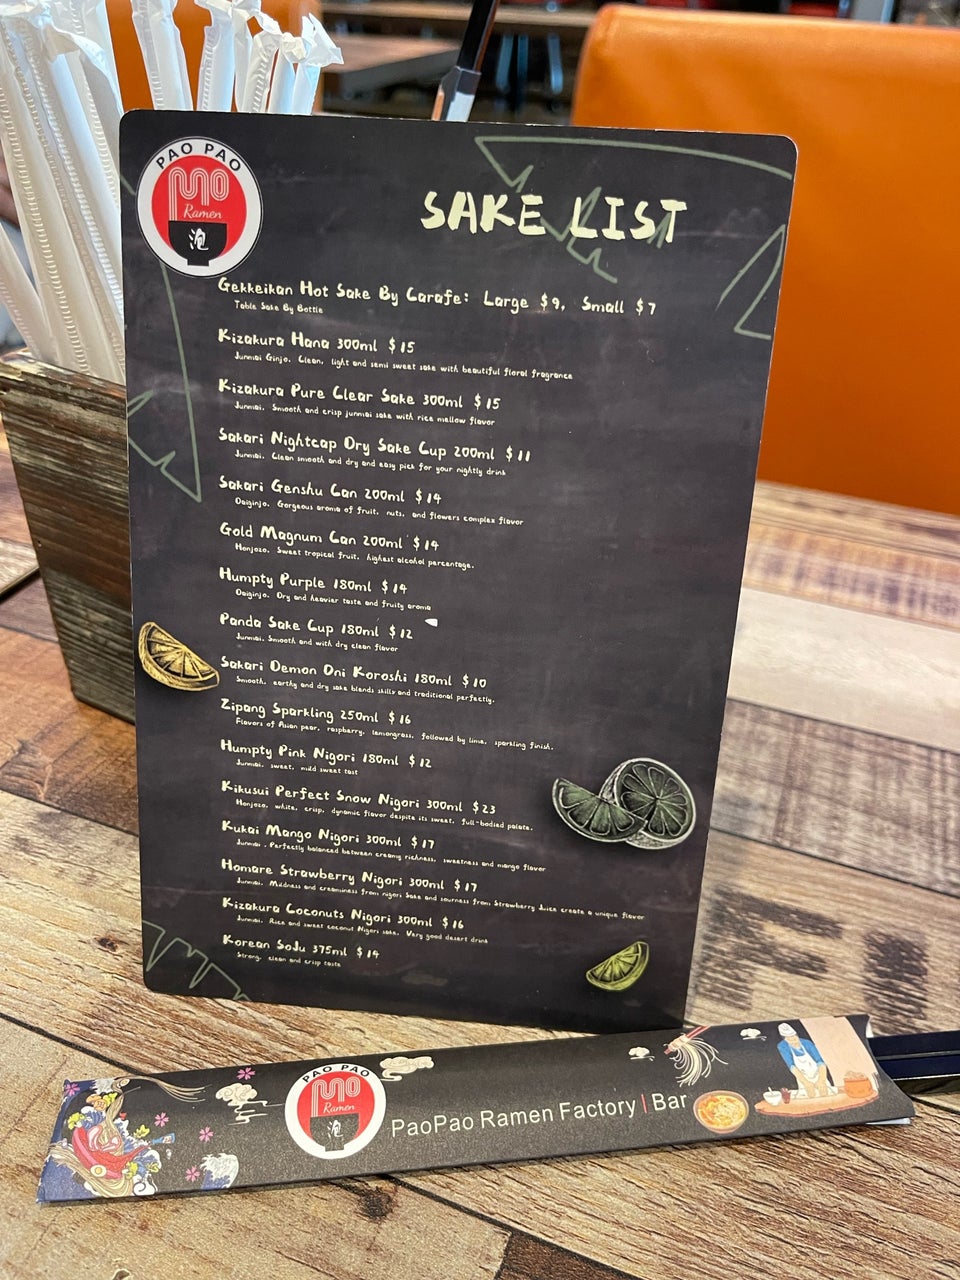 PAO PAO
MO
Ramen
泡
SAKE LIST
Gekkeikan Hot Sake By Carafe: Large $9, Small $7
Table Sake By Bottle
Kizakura Hana 300ml $15
Junmai Ginjo. Clean, light and semi sweet sake with beautiful floral fragrance
Kizakura Pure Clear Sake 300ml $15
Junmai. Smooth and crisp junmai sake with rice mellow flavor
Sakari Nightcap Dry Sake Cup 200ml $11
Junmai. Clean smooth and dry and easy pick for your nightly drink
Sakari Genshu Can 200ml $14
Daiginjo. Gorgeous aroma of fruit, nuts, and flowers complex flavor
Gold Magnum Can 200ml $14
Honjozo. Sweet tropical fruit, highest alcohol percentage.
Humpty Purple 180ml $14
Daiginjo. Dry and heavier taste and fruity aroma
Panda Sake Cup 180ml $12
Junmai. Smooth and with dry clean flavor
Sakari Demon Oni Koroshi 180ml $10
Smooth, earthy and dry sake blends skills and traditional perfectly.
Zipang Sparkling 250ml $16
Flavors of Asian pear, raspberry, lemongrass, followed by lime, sparkling finish.
Humpty Pink Nigori 180ml $12
Junmai, sweet, mild sweet tast
Kikusui Perfect Snow Nigori 300ml $23
Honjozo, white, crisp, dynamic flavor despite its sweet, full-bodied palate.
Kukai Mango Nigori 300ml $17
Junmai. Perfectly balanced between creamy richness, sweetness and mango flavor
Homare Strawberry Nigori 300ml $17
Junmai. Mildness and creaminess from nigori Sake and sourness from Strawberry Juice create a unique flavor
Kizakura Coconuts Nigori 300ml $16
Junmai. Rice and sweet coconut Nigori sake. Very good desert drink
Korean SoJu 375ml $14
Strong, clean and crisp taste
PAO PAO
MO
Ramen
泡
PaoPao Ramen Factory | Bar